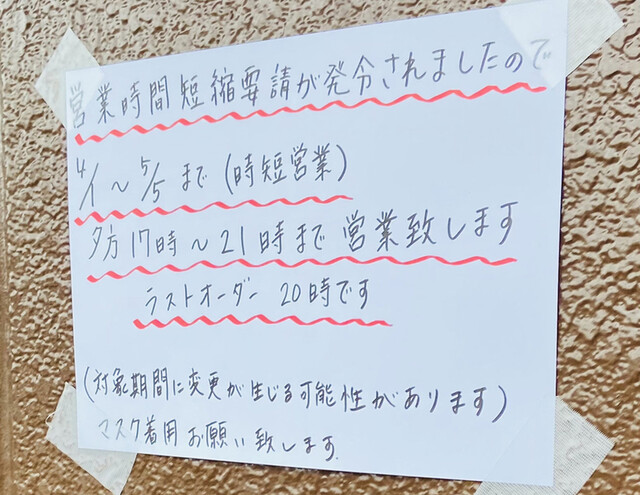 営業時間短縮要請が発令されましたので
4/1～5/5まで(時短営業)
夕方17時～21時まで営業致します
ラストオーダー 20時です
(対象期間に変更が生じる可能性があります)
マスク着用お願い致します.